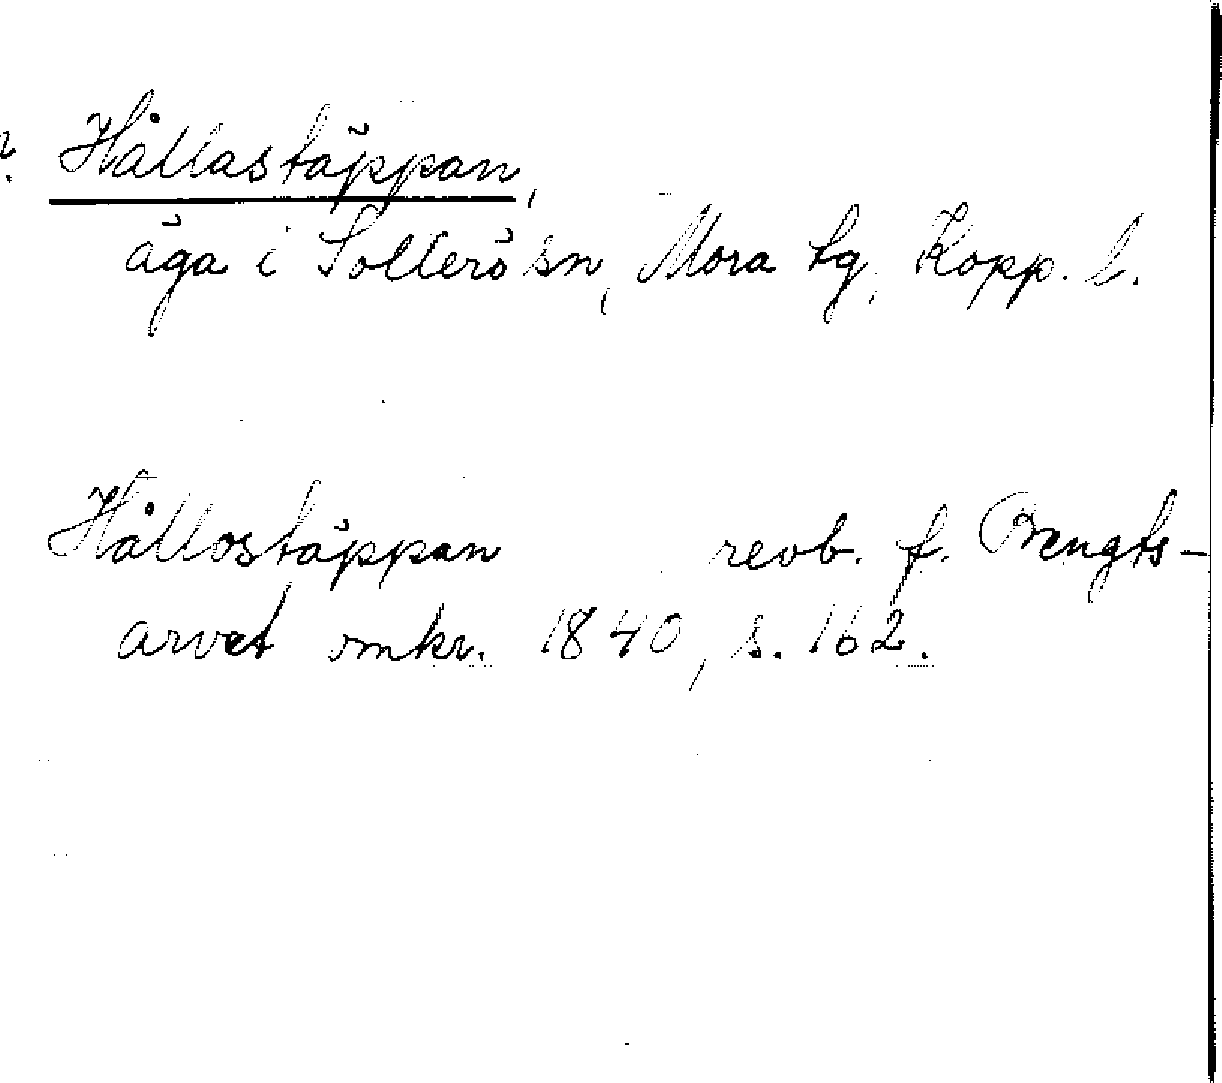 Hållastäppan,
äga i Sollerö sn, Mora tg, Kopp. l.
Hållostäppan revb. f. Bengts-
arvet omkr. 1840, s. 162.